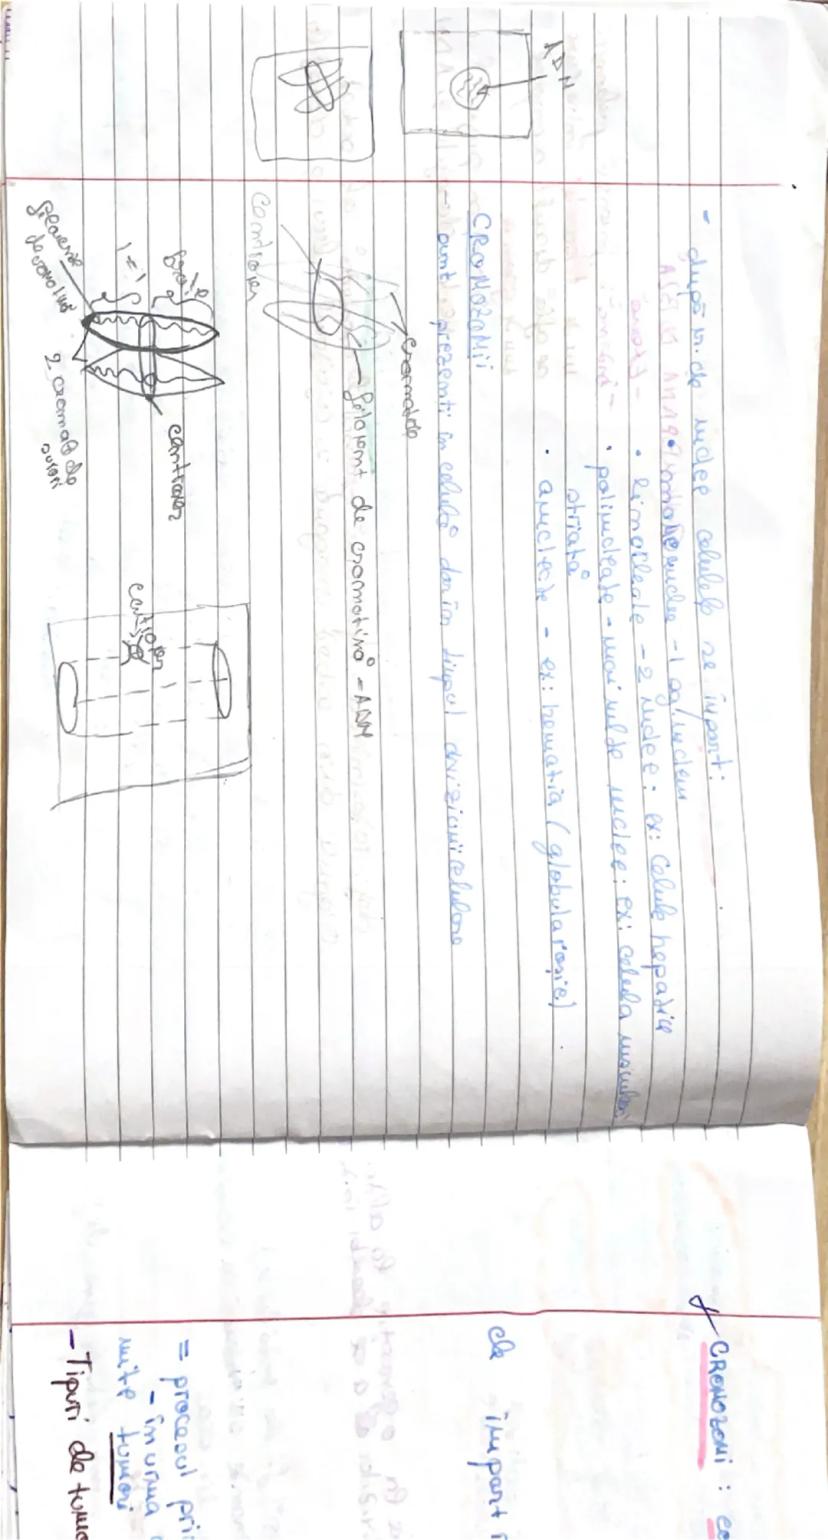 - după nr. de nuclee celulele se împart:
• mononucleate - 1 nucleu
• binucleate - 2 nuclee. ex: celule hepatice
• polinucleate - mai multe nuclee: ex: celula musculară
striată
• anucleate - ex: hematia (globula roșie)
CROMOZOMII
- sunt prezenți în celulă doar în timpul diviziunii celulare
ADN
cromatide
filament de cromatină - ADN
centromer
brațe
centromer
2 cromatide
surori
centromer
CROMOZOMI :
de împart
= procesul
- în urma
mite tumori
- Tipuri de